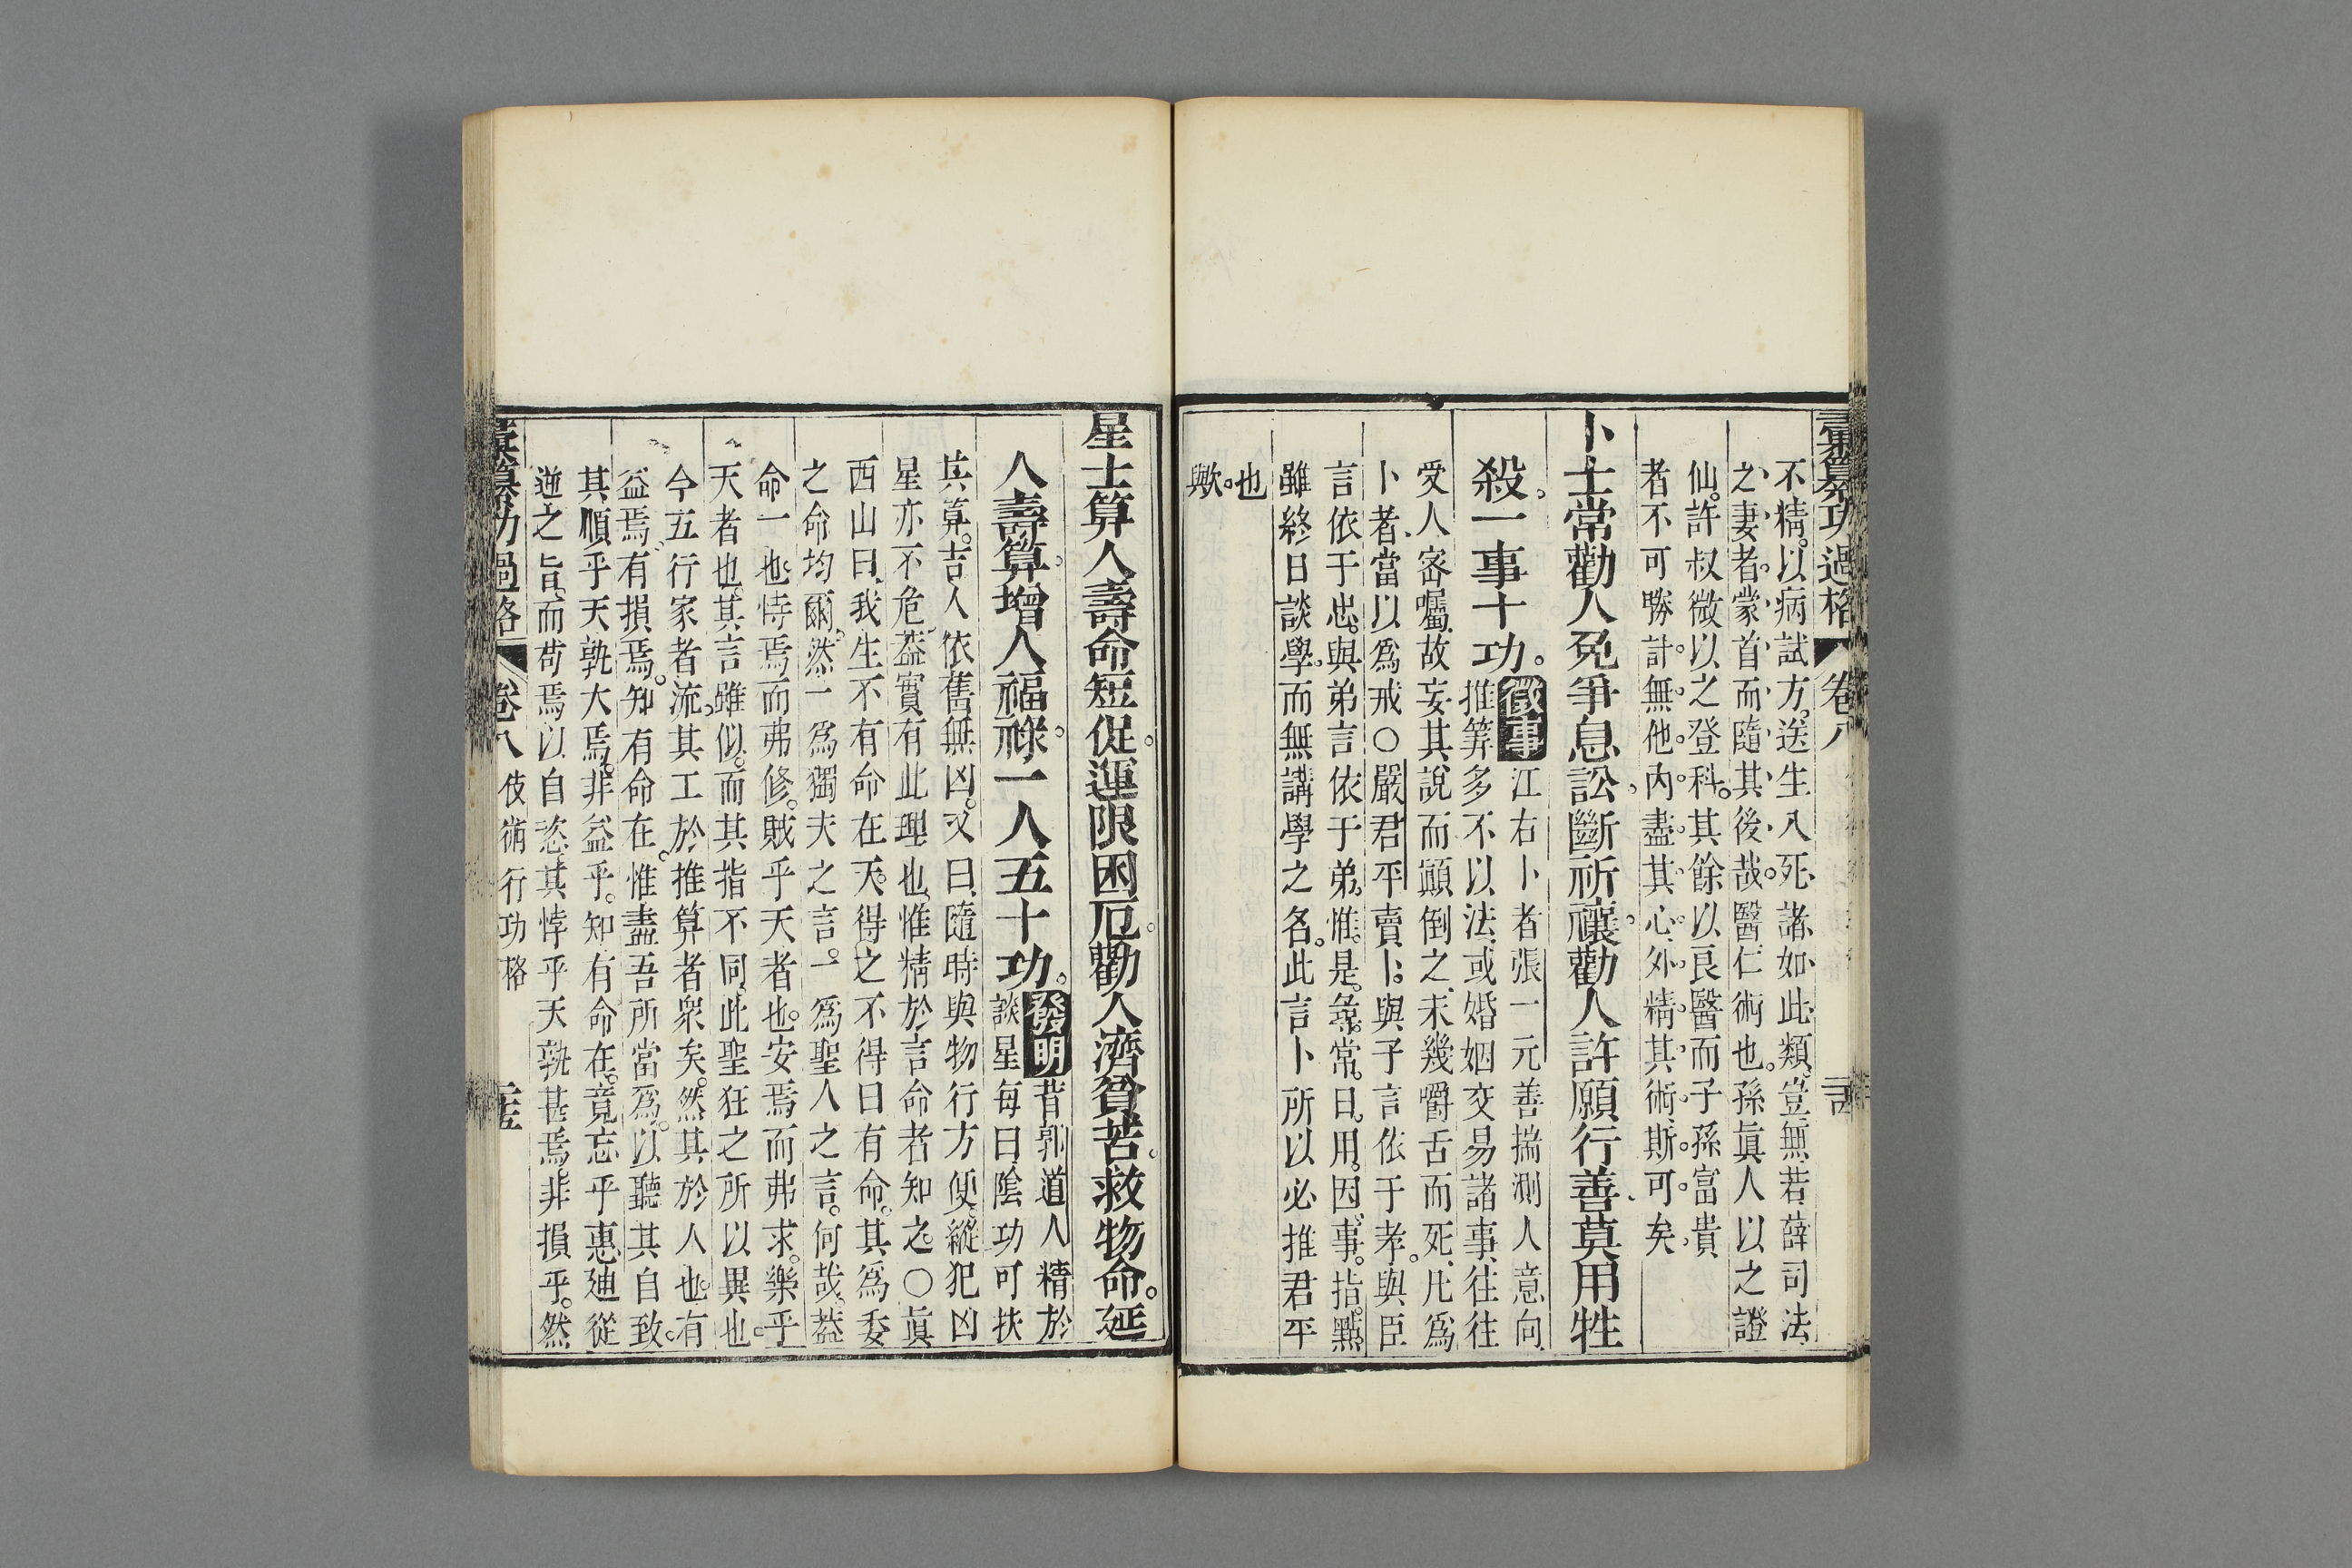 彙纂功過格 卷八
不精。以病試方。送生入死。諸如此類。豈無若薛司法
之妻者。蒙首而隨其後哉。醫仁術也。孫眞人以之證
仙。許叔微以之登科。其餘以良醫而子孫富貴
者不可勝計。無他。內盡其心。外精其術。斯可矣
卜士常勸人免爭息訟。斷祈禳。勸人許願行善莫用牲
殺。一事十功。徵事江右卜者張一元善揣測人意向
推筭多不以法。或婚姻交易諸事。往往
受人密囑。故妄其說而顚倒之。未幾嚼舌而死。凡爲
卜者。當以爲戒〇嚴君平賣卜。與子言依于孝。與臣
言依于忠。與弟言依于弟。惟是彞常日用。因事指點。
雖終日談學。而無講學之名。此言卜所以必推君平
也
歟。
星士算人壽命短促。運限困厄。勸人濟貧苦。救物命。延
人壽算。增人福祿。一人五十功。發明昔郭道人精於
談星。每日陰功可扶
其算。吉人依舊無凶。又曰隨時與物行方便。縱犯凶
星亦不危。葢實有此理也。惟精於言命者知之。〇眞
西山曰。我生不有命在天。得之不得曰有命。其爲委
之命均爾。然一爲獨夫之言。一爲聖人之言。何哉。葢
命一也。恃焉而弗修。賊乎天者也。安焉而弗求。樂乎
天者也。其言雖似。而其指不同。此聖狂之所以異也。
今五行家者流。其工於推算者衆矣。然其於人也。有
益焉。有損焉。知有命在。惟盡吾所當爲。以聽其自致。
其順乎天孰大焉。非益乎。知有命在。竟忘乎惠廸從
逆之旨。而苟焉以自恣。其悖乎天孰甚焉。非損乎。然
彙纂功過格 卷八 伎術行功格 二五